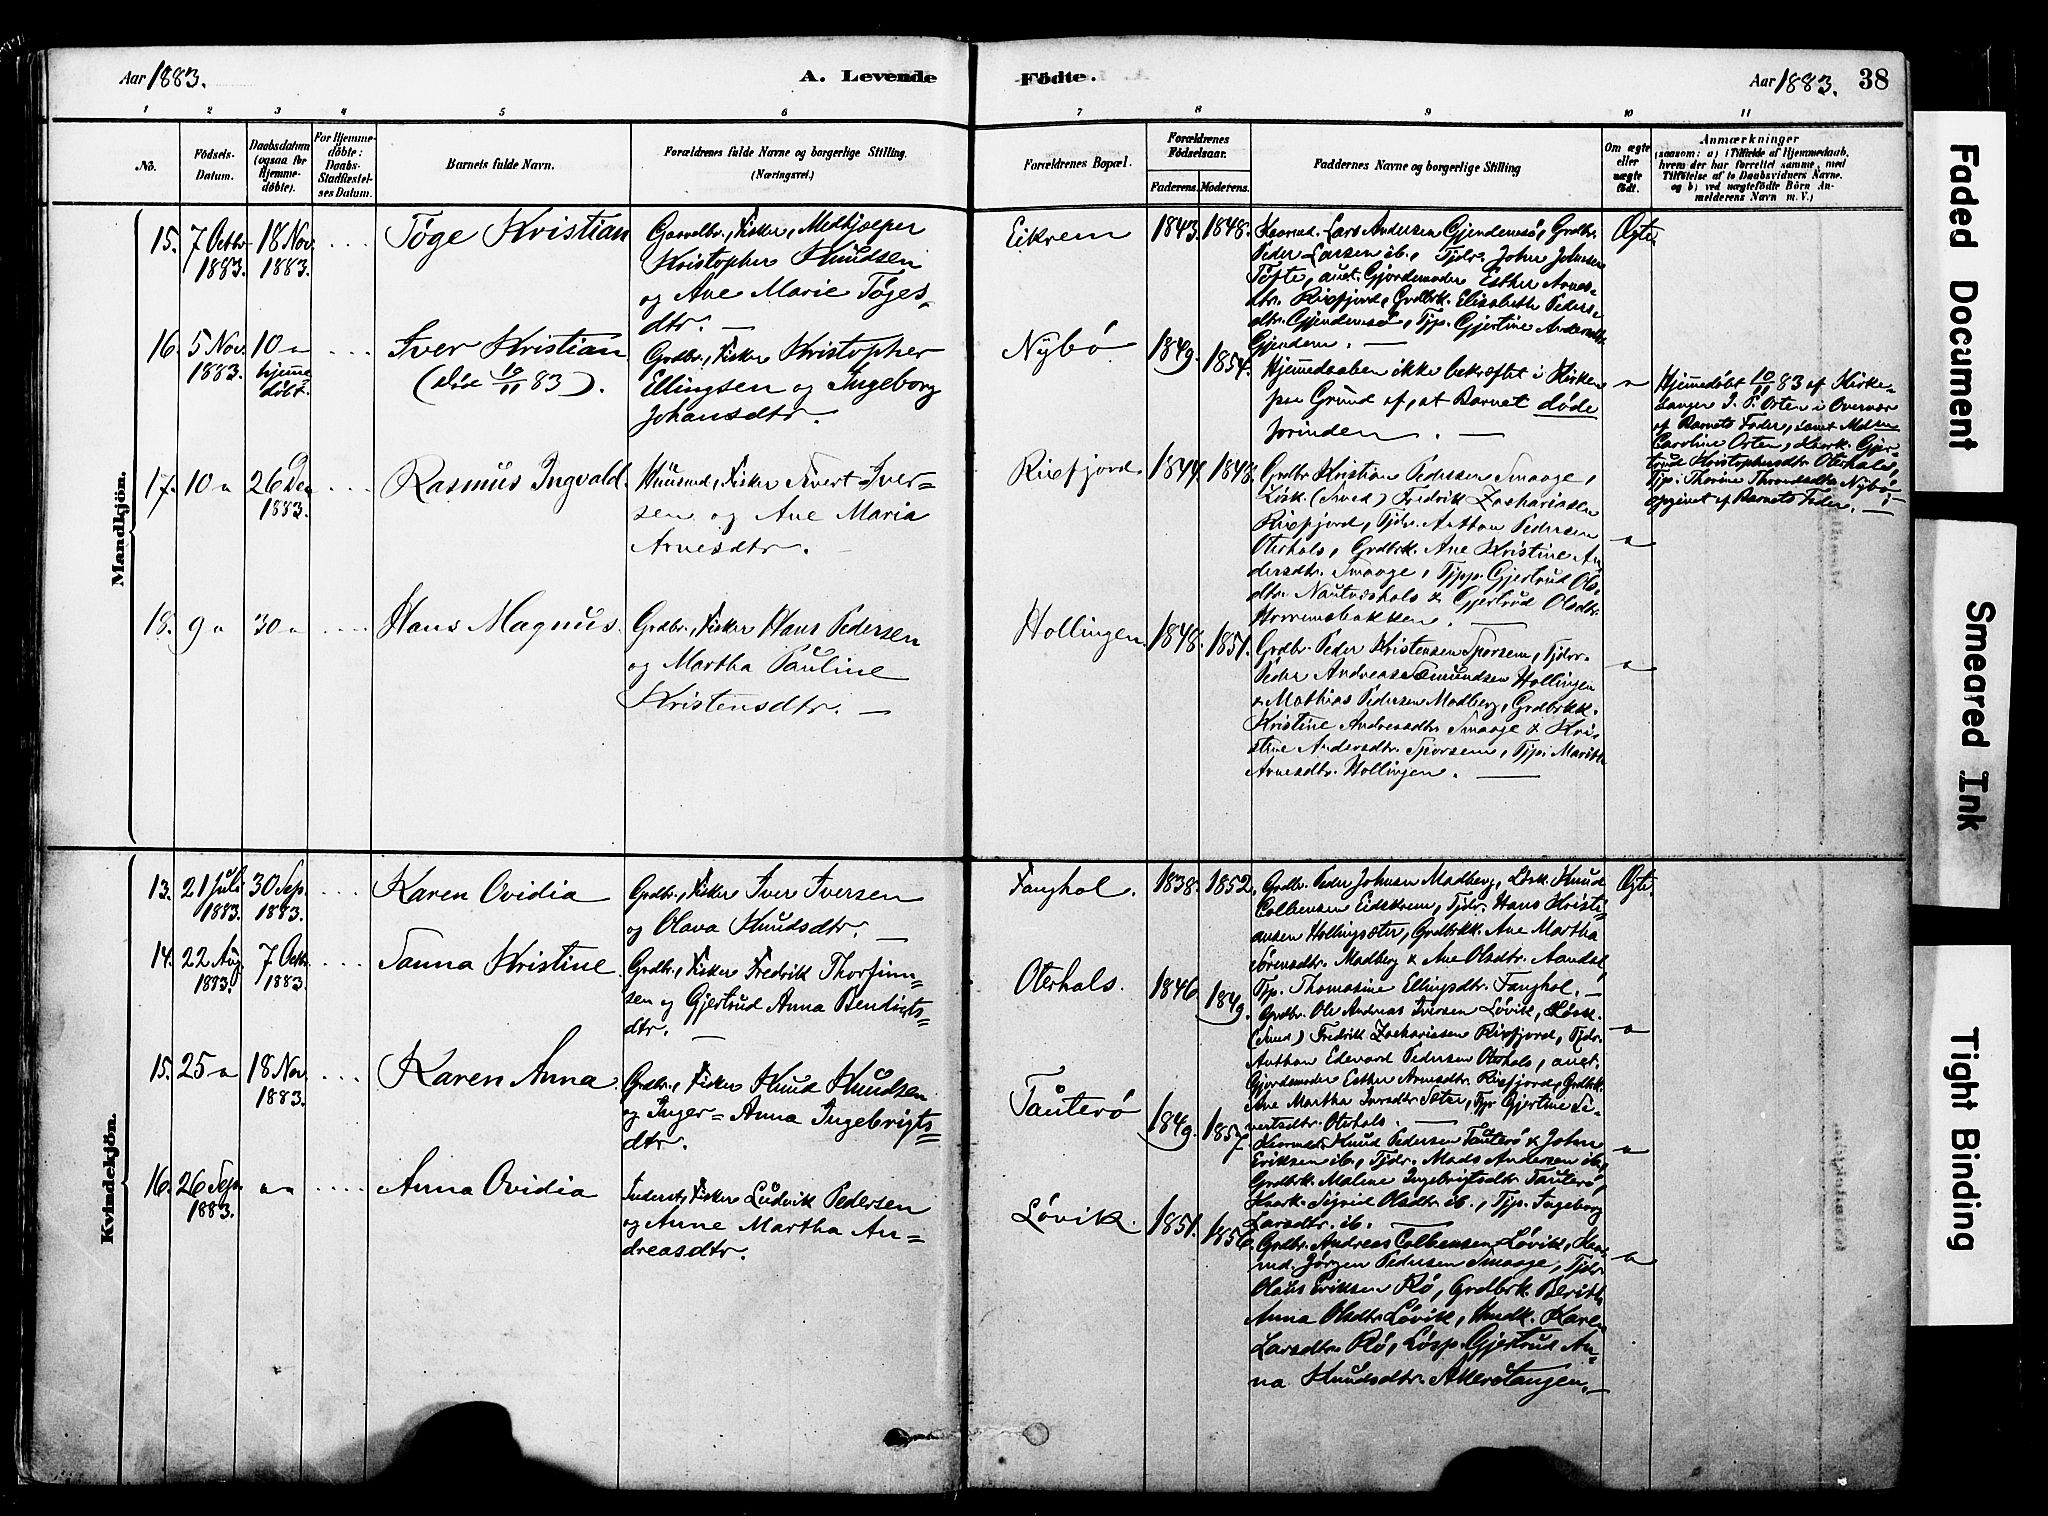 Aar 1883.
A. Levende
Födte.
Aar 1883.
38
1 2 3 4 5 6 7 8 9 10 11
No.
Födsels-
Datum.
Daabsdatum
(ogsaa for
Hjemme-
döbte).
For Hjemme-
döbte:
Daabs-
Stadfæstel-
ses Datum.
Barnets fulde Navn.
Forældrenes fulde Navne og borgerlige Stilling.
(Næringsvei.)
Forældrenes Bopæl.
Forældrenes
Födselsaar.
Faderens.
Moderens.
Faddernes Navne og borgerlige Stilling
Om ægte
eller
uægte
födt.
Anmærkninger
(saasom: a) i Tilfælde af Hjemmedaab,
hvem der har forrettet samme, med
Tilföielse af to Daabsvidners Navne.
og b) ved uægtefödte Börn An-
melderens Navn m. V.)
Mandkjön.
15. 7 Octbr 1883. 18 Nov. 1883.
Tøge Kristian
Gaardbr., Fisker, Medhjælper
Kristopher Knudsen
og Ane Marie Tøges-
dtr. —
Eikrem
1843. 1848.
Kaarmd. Lars Andersen Gjendemsø, Grdbr.
Peder Larsen ib., Tjdr. John Johnsen
Tøfte, auct. Gjordemoder Esther Arnes-
dtr. Rixfjord, Grdbrk. Elisabeth Peders-
dtr. Gjendemsø, Tjp. Gjertine Andersdtr.
Gjendem. —
Ægte.
16. 5 Nov. 1883. 10 " hjemme døbt.
Iver Kristian
(døde 10/11 83).
Grdbr., Fisker Kristopher
Ellingsen og Ingeborg
Johansdtr.
Nybø
1849. 1854.
Hjemmedaaben ikke bekræftet i Kirken
paa Grund af, at Barnet døde
forinden. —
Hjemmedøbt 10/11 83 af Kirke-
sanger J. P. Orten i Overvær
af Barnets Fader, samt Mdm
Caroline Orten, Kaark. Gjer-
trud Kristophersdtr. Oterhals,
Tjp. Thorine Thronsdtr. Nybø,
opgivet af Barnets Fader. —
17. 10 " 26 Dec. 1883.
Rasmus Ingvald.
Huusmd., Fisker Sivert Iver-
sen og Ane Maria
Arnesdtr. —
Rixfjord
1844. 1848.
Grdbr. Kristian Pedersen Smaage,
Løsk. (Smed) Fredrik Zachariassen
Rixfjord, Tjdr. Anthon Pedersen
Oterhals, Grdbrk. Ane Kristine An-
dersdtr. Smaage, Tjpp. Gjertrud Ols-
dtr. Nautneshals & Gjertrud Olsdtr.
18. 9 " 30 "
Hans Magnus.
Grdbr., Fisker Hans Pedersen
og Martha Pauline
Kristensdtr. —
Hollingen
1848. 1851.
Grdbr. Peder Kristensen Sporsem, Tjdr.
Peder Andreas Æmundsen Hollingen
& Mathias Pedersen Malberg, Grdbrkk.
Kristine Andreasdtr. Smaage & Kri-
stine Andersdtr. Sporsem, Tjp. Marith
Arnesdtr. Hollingen. —
Kvindekjön.
13. 21 Juli 1883. 30 Sep. 1883.
Karen Ovidia
Grdbr., Fisker Iver Iversen
og Olava Knudsdtr. —
Fanghol.
1838. 1852.
Grdbr. Peder Johnsen Malberg, Løsk. Knud
Colbensen Eidskrem, Tjdr. Hans Kristi-
ansen Hollingsæter, Grdbrkk. Ane Martha
Sørensdtr. Malberg & Ane Olsdtr. Aandal,
Tjp. Thomasine Ellingsdtr. Fanghol. —
Ægte.
14. 22 Aug. 1883. 7 Octbr. 1883.
Sanna Kristine
Grdbr., Fisker Fredrik Thorfinn-
sen og Gjertrud Anna Bendigts-
dtr. —
Oterhals.
1846. 1849.
Grdbr. Ole Andreas Iversen Løvik, Løsk.
(Smed) Fredrik Zachariassen Rixfjord, Tjdr.
Anthon Edevard Pedersen Oterhals, auct.
Gjordemoder Esther Arnesdtr. Rixfjord, Grdbrk.
Ane Martha Iversdtr. Sæter, Tjp. Gjertine Si-
vertsdtr. Oterhals. —
15. 25 " 18 Nov. 1883.
Karen Anna
Grdbr., Fisker Knud Knudsen
og Inger-Anna Ingebrigts-
dtr.
Tauterø
1849. 1857.
Kaarmd. Knud Pedersen Tauterø & John
Eriksen ib., Tjdr. Mads Andersen ib.,
Grdbrk. Malene Ingebrigtsdtr. Tauterø,
Kaark. Sigrid Olsdtr. ib., Tjp. Ingeborg
Larsdtr. ib.
16. 26 Sep. 1883. " "
Anna Ovidia
Inderst, Fisker Ludvik Pedersen
og Anne Martha An-
dreasdtr.
Løvik.
1851. 1856.
Grdbr. Andreas Colbensen Løvik, Kaar-
md. Jørgen Pedersen Smaage, Tjdr.
Olaus Eriksen Rø, Grdbrk. Berith
Anna Olsdtr. Løvik, Hmdk. Karen
Larsdtr. Rø, Løsp. Gjertrud An-
na Knudsdtr. Akerstangen. —
Faded Document
Smeared Ink
Tight Binding